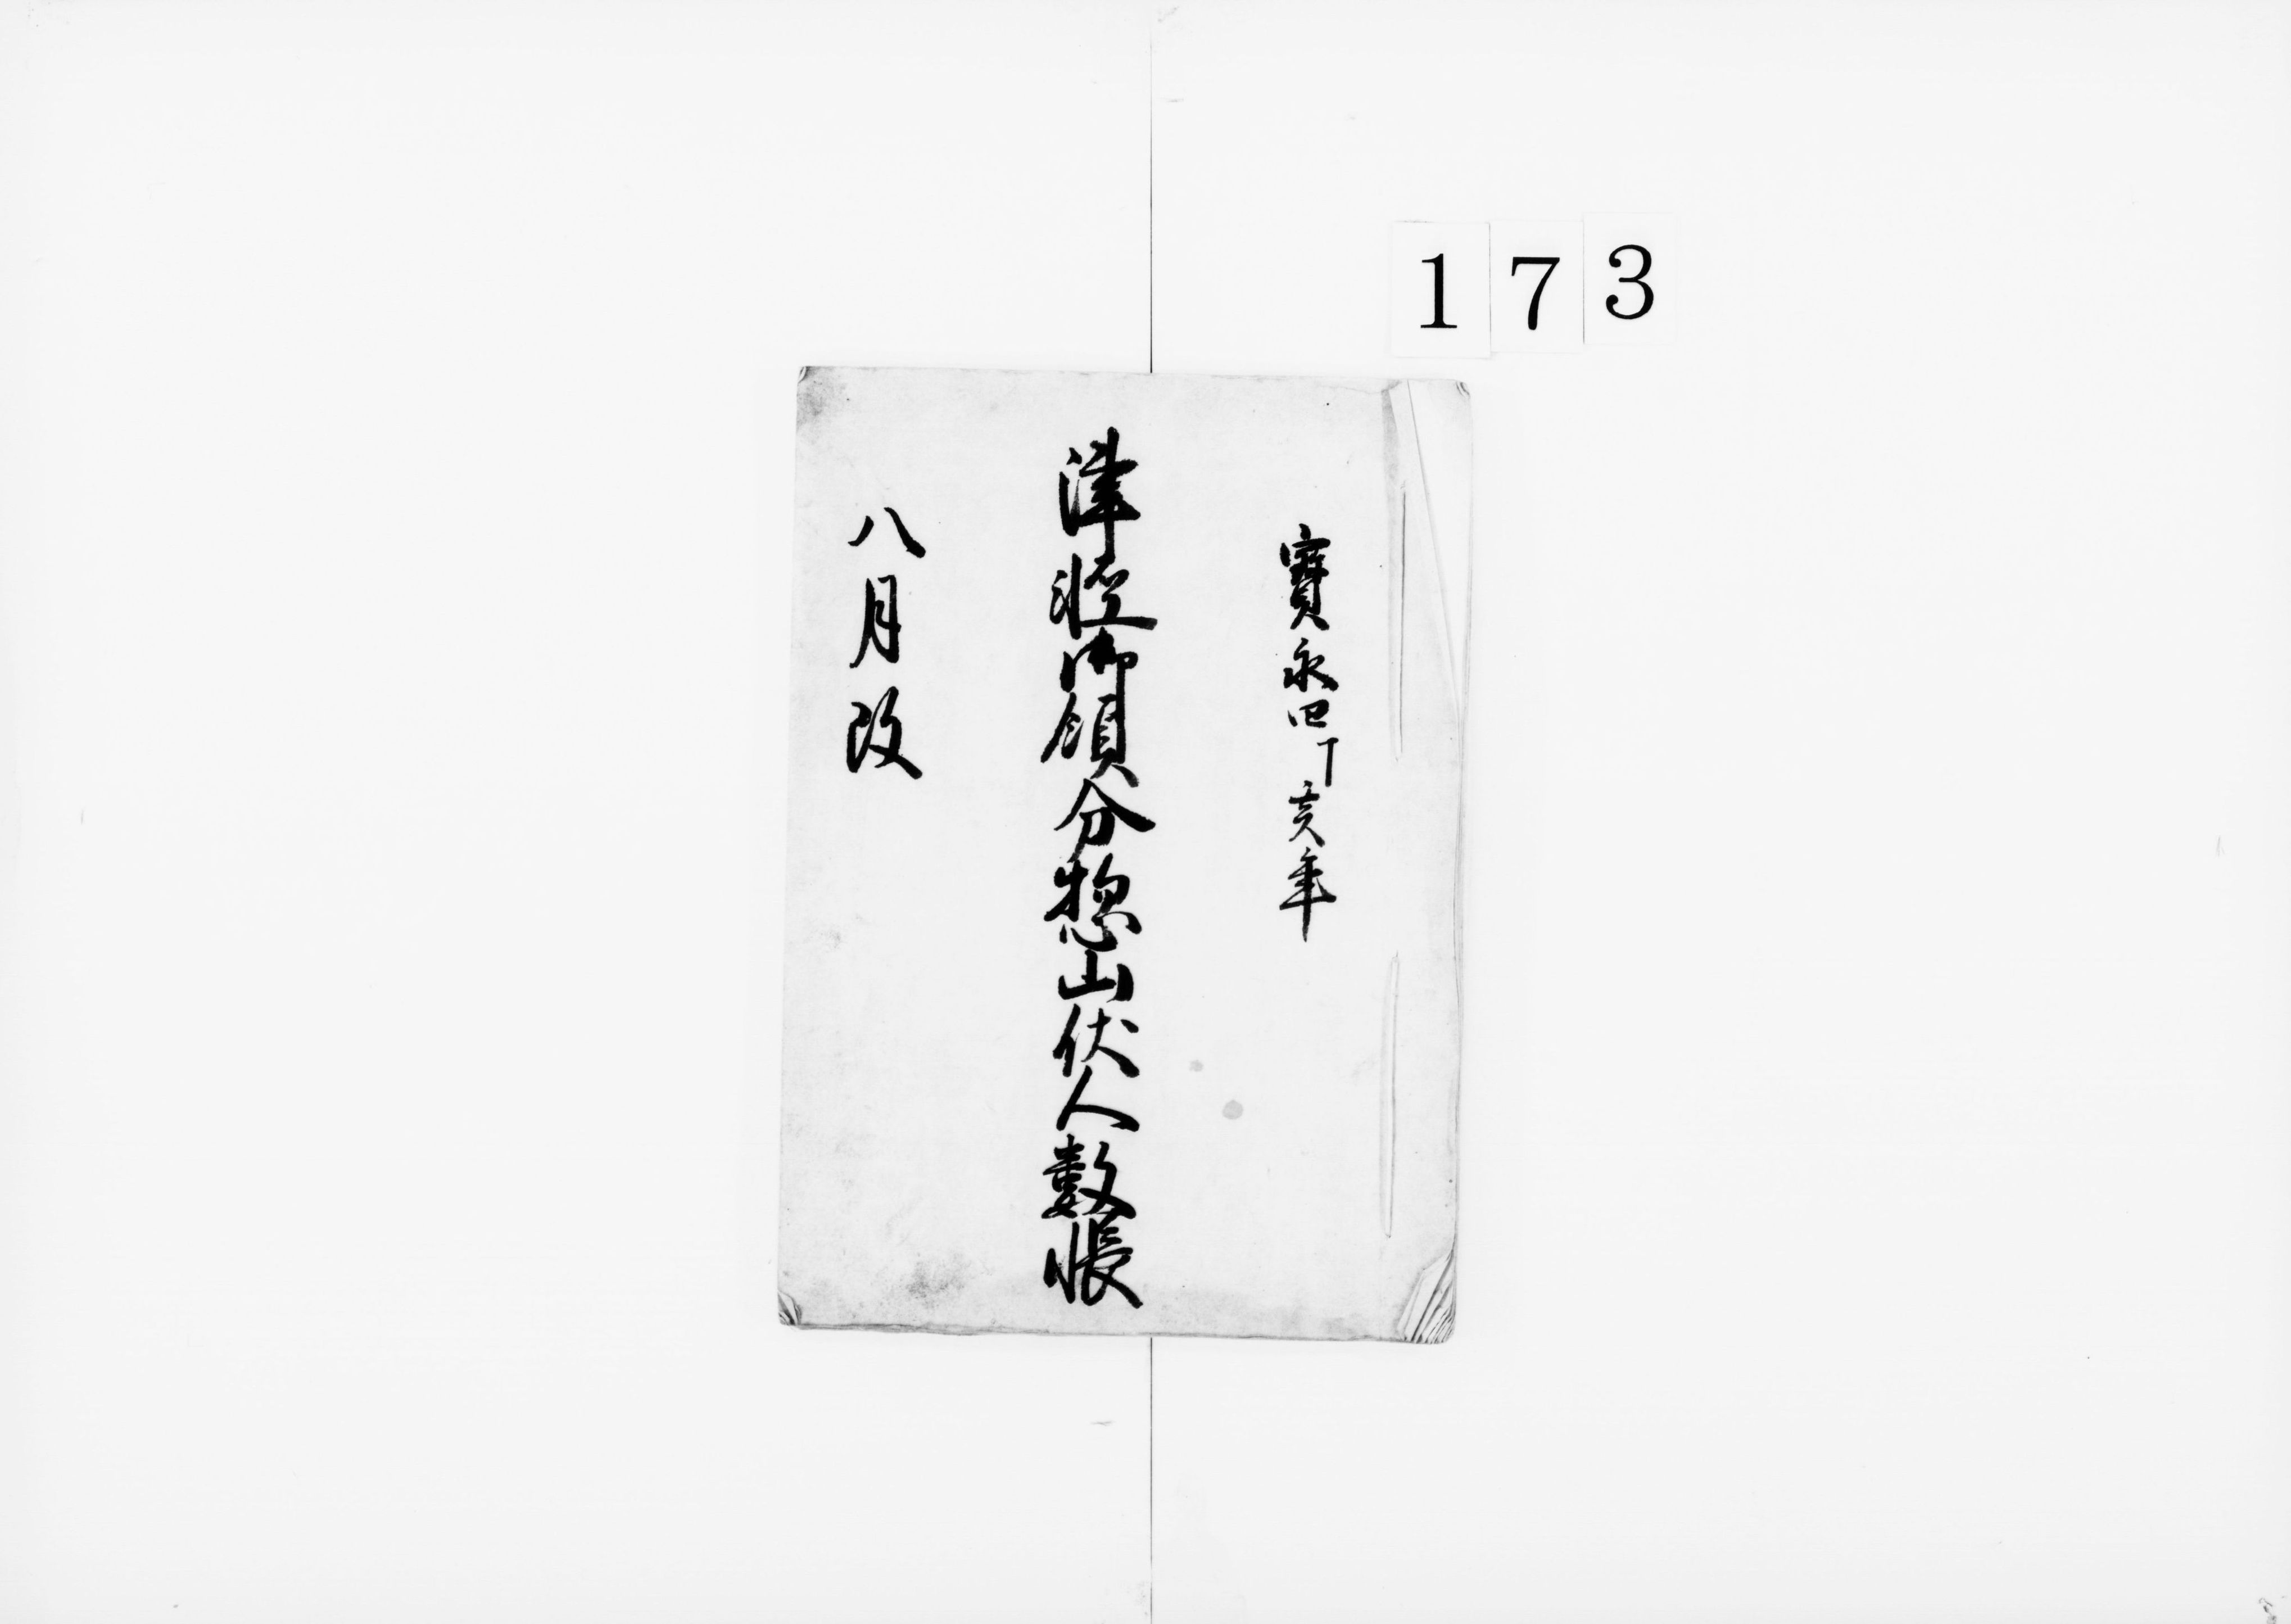 173
寳永四丁亥年
津軽御領分惣山伏人數帳
八月改